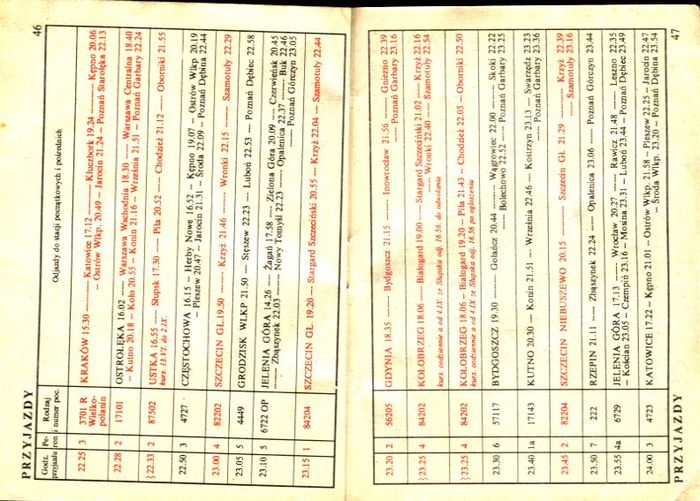 46
PRZYJAZDY
Godz. przyjazdu
Pe- ron
Rodzaj i numer poc.
Odjazdy do stacji początkowych i pośrednich
22.25 3 3701 R Wielko- polanin KRAKÓW 15.30 ——— Katowice 17.12 ——— Kluczbork 19.24 ——— Kępno 20.06
— Ostrów Wlkp. 20.49 — Jarocin 21.24 — Poznań Starołęka 22.13
22.28 2 17101 OSTROŁĘKA 16.02 ——— Warszawa Wschodnia 18.30 ——— Warszawa Centralna 18.40
— Kutno 20.18 — Koło 20.55 — Konin 21.16 — Września 21.51 — Poznań Garbary 22.24
22.33 2 87502 USTKA 16.55 —— Słupsk 17.30 ——— Piła 20.52 ——— Chodzież 21.12 ——— Oborniki 21.55
kurs. 13.VI. do 2.IX.
22.50 3 4727 CZĘSTOCHOWA 16.15 — Herby Nowe 16.52 — Kępno 19.07 — Ostrów Wlkp 20.19
— Pleszew 20.47 — Jarocin 21.31 — Środa 22.09 — Poznań Dębina 22.44
23.00 4 82202 SZCZECIN GŁ.19.50 ——— Krzyż 21.46 ——— Wronki 22.15 ——— Szamotuły 22.29
23.05 5 4449 GRODZISK WLKP 21.50 — Stęszew 22.23 — Luboń 22.53 — Poznań Dębiec 22.58
23.10 5 6722 OP JELENIA GÓRA 14.26 —— Żagań 17.58 —— Zielona Góra 20.09 —— Czerwieńsk 20.45
—— Zbąszynek 22.03 —— Nowy Tomyśl 22.23 —— Opalenica 22.37 —— Buk 22.46
—— Poznań Górczyn 23.05
23.15 1 84204 SZCZECIN GŁ. 19.20 —— Stargard Szczeciński 20.55 — Krzyż 22.04 — Szamotuły 22.44
23.20 2 56205 GDYNIA 18.35 —— Bydgoszcz 21.15 ——— Inowrocław 21.56 ——— Gniezno 22.39
——— Poznań Garbary 23.16
23.25 4 84202 KOŁOBRZEG 18.06 —— Białogard 19.00 —— Stargard Szczeciński 21.02 —— Krzyż 22.16
kurs. codziennie a od 4.IX. ze Słupska odj. 16.56. do odwołania —— Wronki 22.40 —— Szamotuły 22.54
23.25 4 84202 KOŁOBRZEG 18.06 — Białogard 19.20 — Piła 21.43 — Chodzież 22.05 — Oborniki 22.50
kurs. codziennie a od 4.IX. ze Słupska odj. 16.56 po ogłoszeniu
23.30 6 57117 BYDGOSZCZ 19.30 ——— Gołańcz 20.44 ——— Wągrowiec 22.00 ——— Skoki 22.22
——— Bolechowo 22.52 ——— Poznań Garbary 23.25
23.40 1a 17143 KUTNO 20.30 — Konin 21.51 — Września 22.46 — Kostrzyn 23.13 — Swarzędz 23.23
—— Poznań Garbary 23.36
23.45 2 82204 SZCZECIN NIEBUSZEWO 20.15 ——— Szczecin Gł. 21.29 ——— Krzyż 22.39
——— Szamotuły 23.16
23.50 7 222 RZEPIN 21.11 —— Zbąszynek 22.24 —— Opalenica 23.06 —— Poznań Górczyn 23.44
23.55 4a 6729 JELENIA GÓRA 17.13 —— Wrocław 20.27 —— Rawicz 21.48 —— Leszno 22.35
— Kościan 23.05 — Czempiń 23.16 — Mosina 23.31 — Luboń 23.44 — Poznań Dębiec 23.49
24.00 3 4723 KATOWICE 17.22 — Kępno 21.01 — Ostrów Wlkp. 21.58 — Pleszew 22.25 — Jarocin 22.47
— Środa Wlkp. 23.20 — Poznań Dębina 23.54
PRZYJAZDY
47